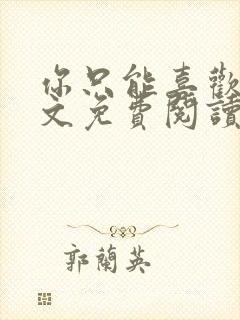 你只能喜歡
文免費閱讀
郭蘭英